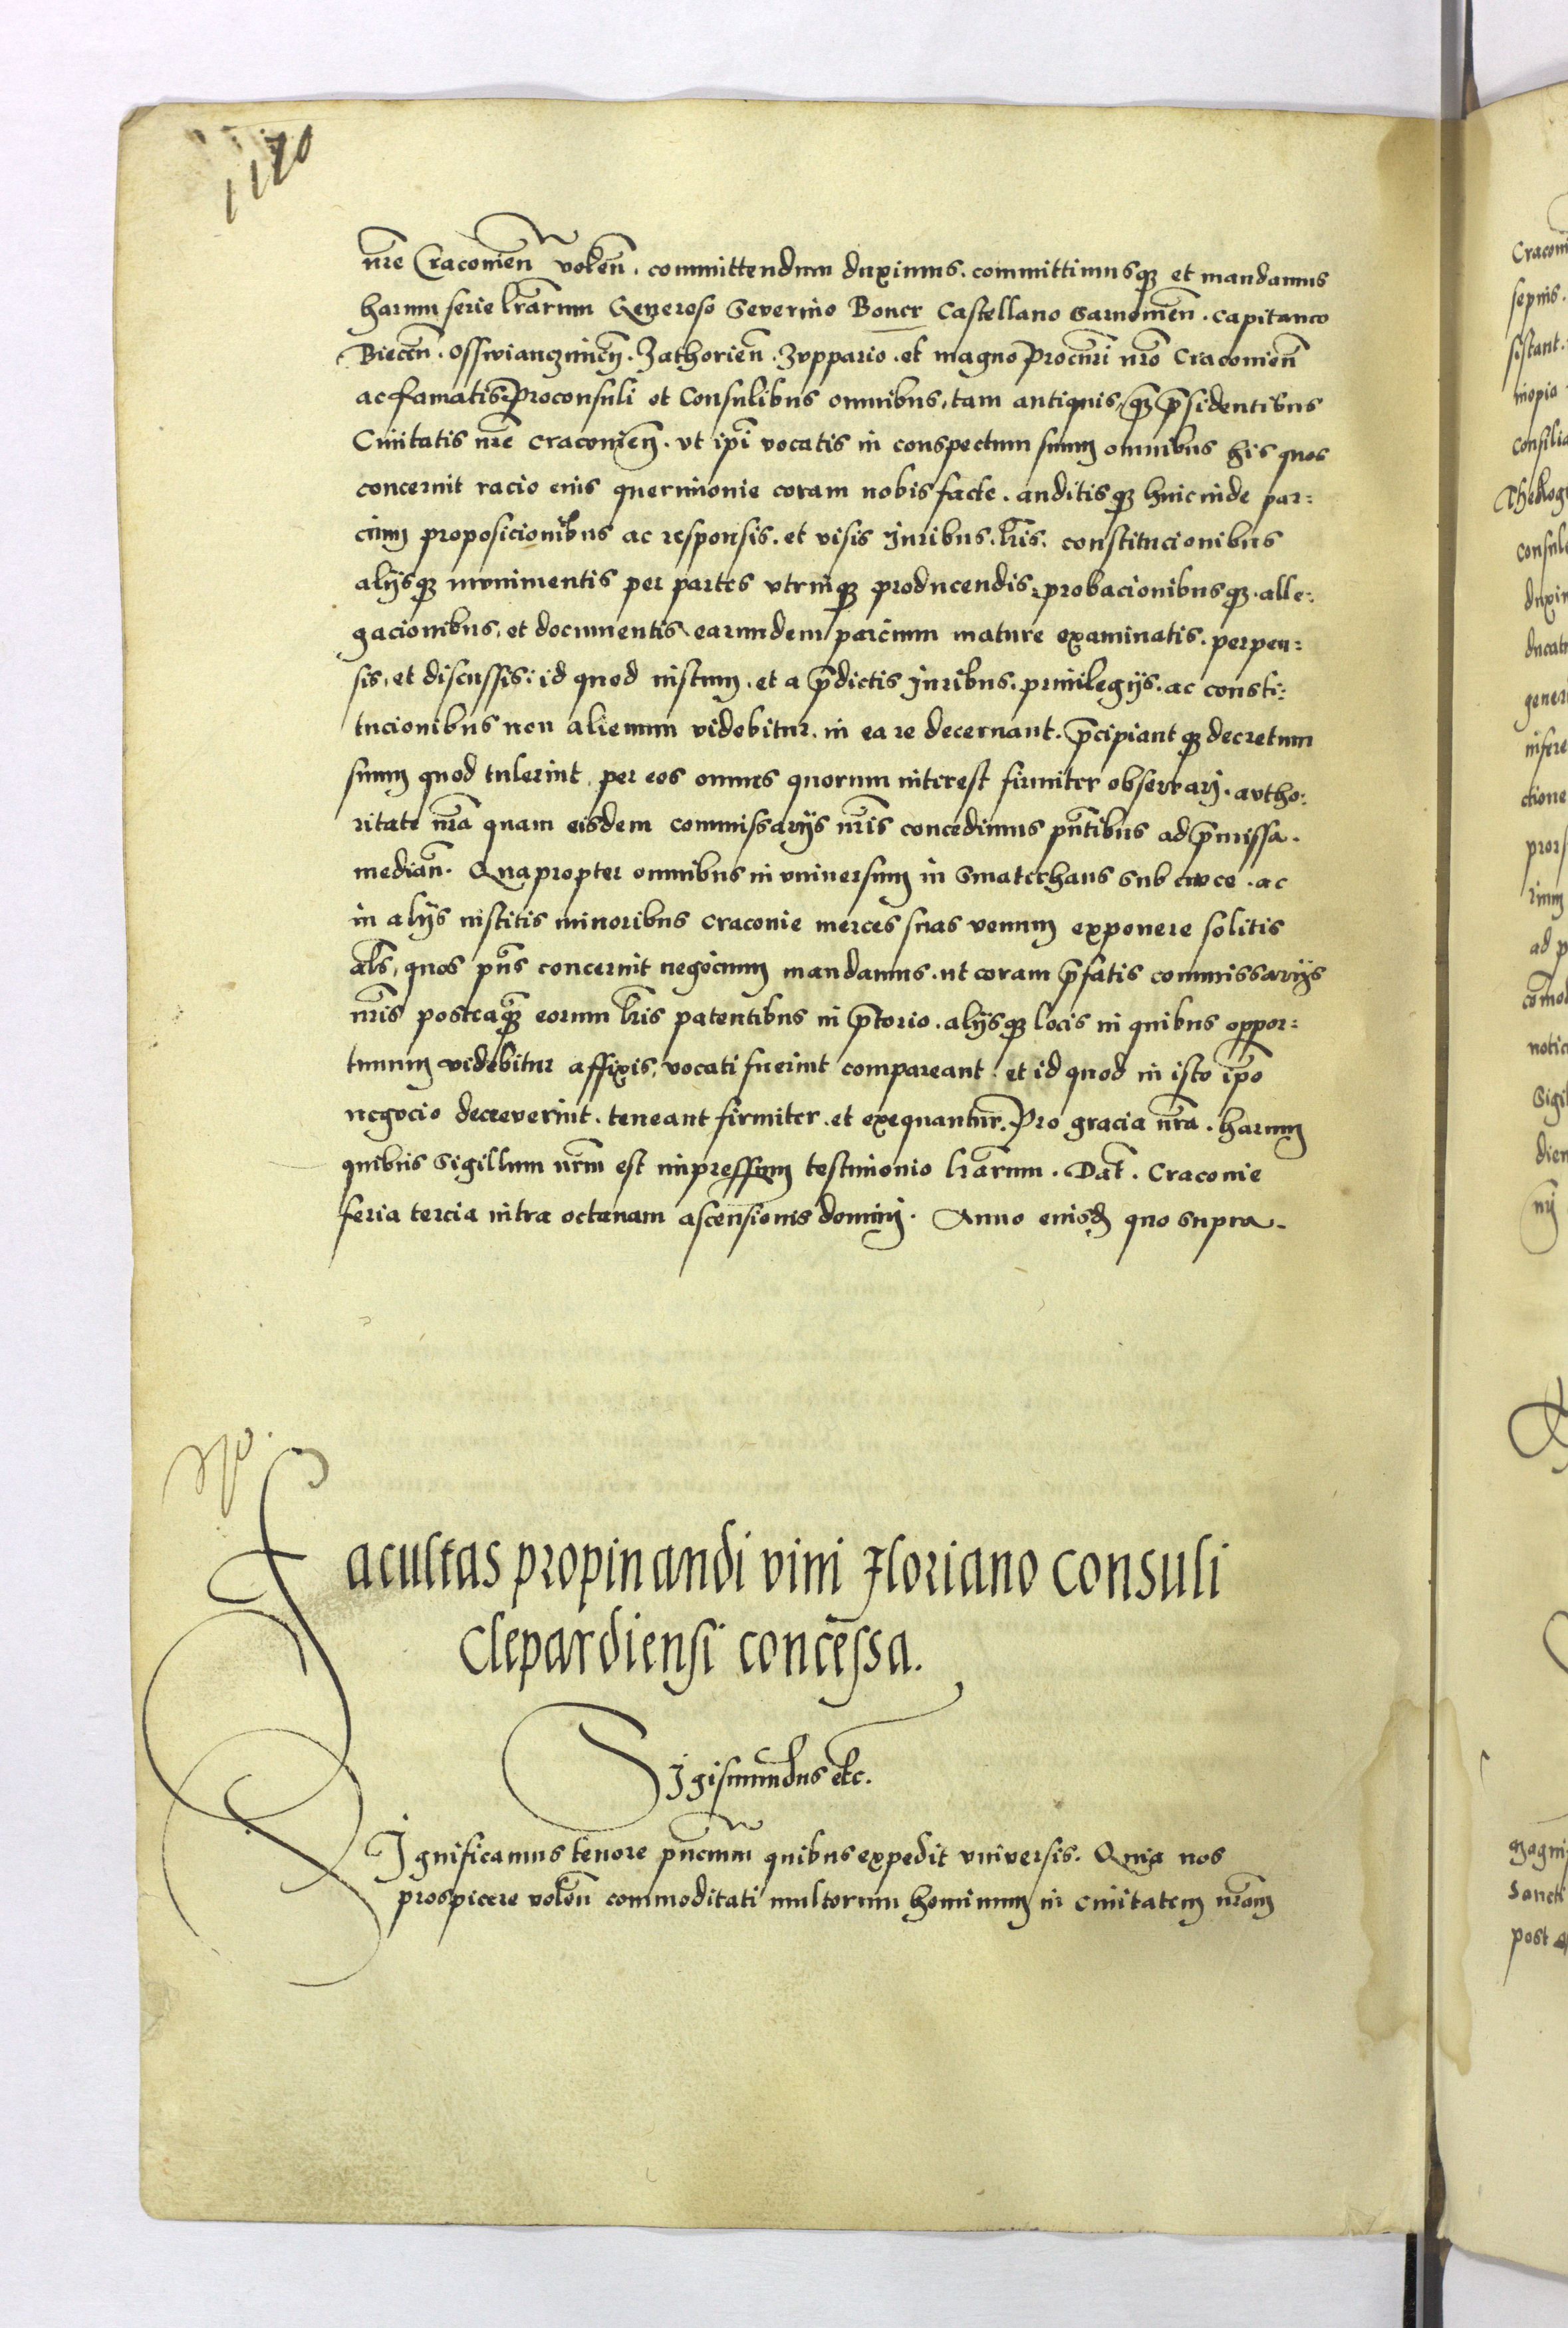 1120
nr̃e Craconieñ voleñ. committendum duximus. committimusqꝫ et mandamus
harum serie lr̃arum Generoso Severino Boner Castellano Sarnowieñ. Capitaneo
Bieceñ. Osswianczimeñ. Zathorieñ. Zuppario. et magno Procur̃ri nr̃o Craconieñ
ac famatis Proconsuli et Consulibus omnibus, tam antiquis, qꝫ p̃sidentibus
Ciuitatis nr̃e Cracouieñ. vt ip̃i vocatis in conspectum suum omnibus his quos
concernit racio eius querimonie coram nobis facte. auditisqꝫ hincinde par:
cium proposicionibus ac responsis. et visis Iuribus. lr̃is. constitucionibus
alijsqꝫ munimentis per partes vtrinqꝫ producendis, probacionibusqꝫ. alle:
gacionibus, et documentis earundem parcium mature examinatis. perpen:
sis, et discussis: id quod iustum. et a p̃dictis Iuribus. priuilegijs. ac consti:
tucionibus non alienum videbitur. in ea re decernant. p̃cipiantqꝫ decretum
suum quod tulerint per eos omnes quorum interest firmiter observari. autho:
ritate nr̃a quam eisdem commissarijs nr̃is concedimus pñtibus ad p̃missa.
mediañ. Quapropter omnibus in vniversum in Smatrhaus sub cwce. ac
in alijs institis minoribus Craconie merces suas venum exponere solitis
al̃s, quos pñs concernit negocium mandamus. ut coram p̃fatis commissarijs
nr̃is posteaqꝫ eorum lr̃is patentibus in p̃torio. alijsqꝫ locis in quibus oppor:
tunum videbitur affixis, vocati fuerint compareant. et id quod in isto ip̃o
negocio decreverint. teneant firmiter. et exequantur. Pro gracia nr̃a. harum
quibus Sigillum nr̃m est impressum testimonio lr̃arum. Dat̃. Craconie
feria tercia intra octavam ascensionis domini. Anno eiusd̃ quo supra.
Facultas propinandi vini Floriano consuli
Clepardiensi concessa.
Sigismundus etc.
Significamus tenore pñcium quibus expedit vniversis. Quia nos
prospicere voleñ commoditati multorum hominum in ciuitatem nr̃am